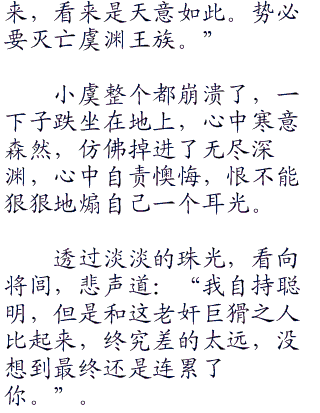 来，看来是天意如此。势必
要灭亡虞渊王族。”
小虞整个都崩溃了，一
下子跌坐在地上，心中寒意
森然，仿佛掉进了无尽深
渊，心中自责懊悔，恨不能
狠狠地煽自己一个耳光。
透过淡淡的珠光，看向
将闾，悲声道：“我自持聪
明，但是和这老奸巨猾之人
比起来，终究差的太远，没
想到最终还是连累了
你。”。